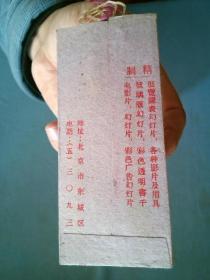 精制
幻灯片、各种影片及用具
玻璃框幻灯片、彩色透明书千
电影片、幻灯片、彩色广告幻灯片
地址：北京市东城区
电话：（五）三〇九三